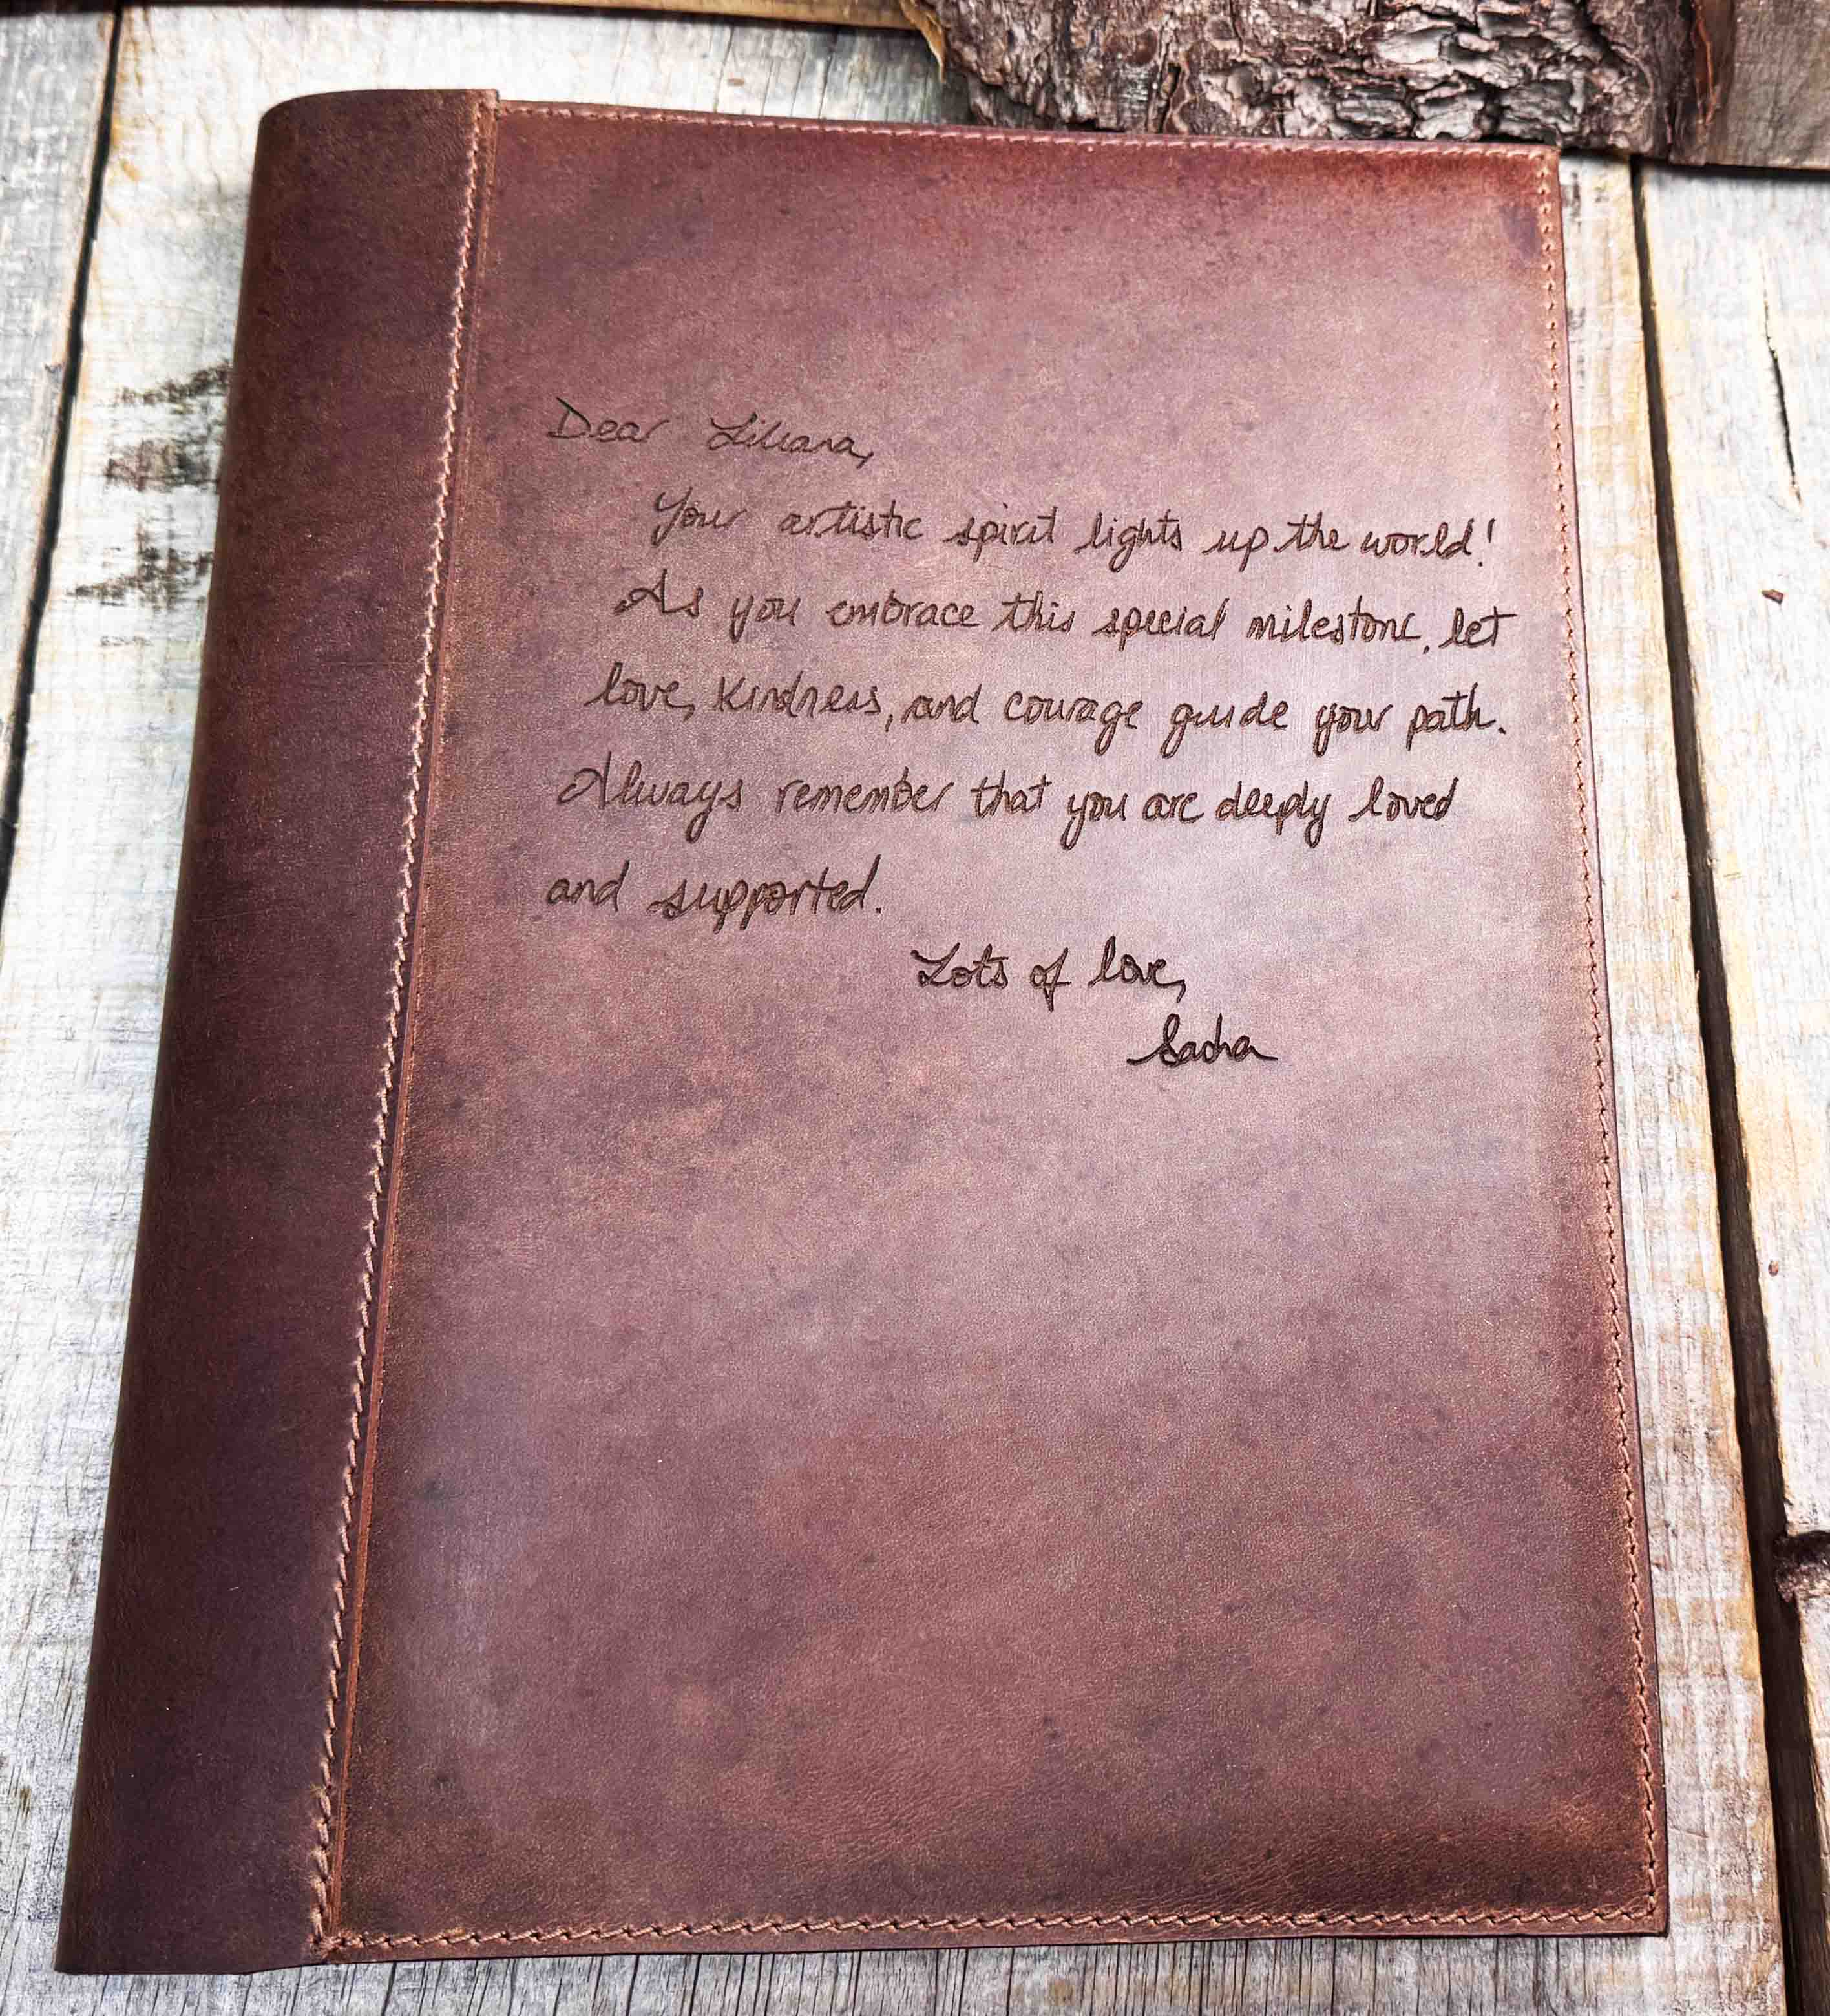 Dear Liliana,
Your artistic spirit lights up the world!
As you embrace this special milestone, let
love, kindness, and courage guide your path.
Always remember that you are deeply loved
and supported.
Lots of love,
Sacha